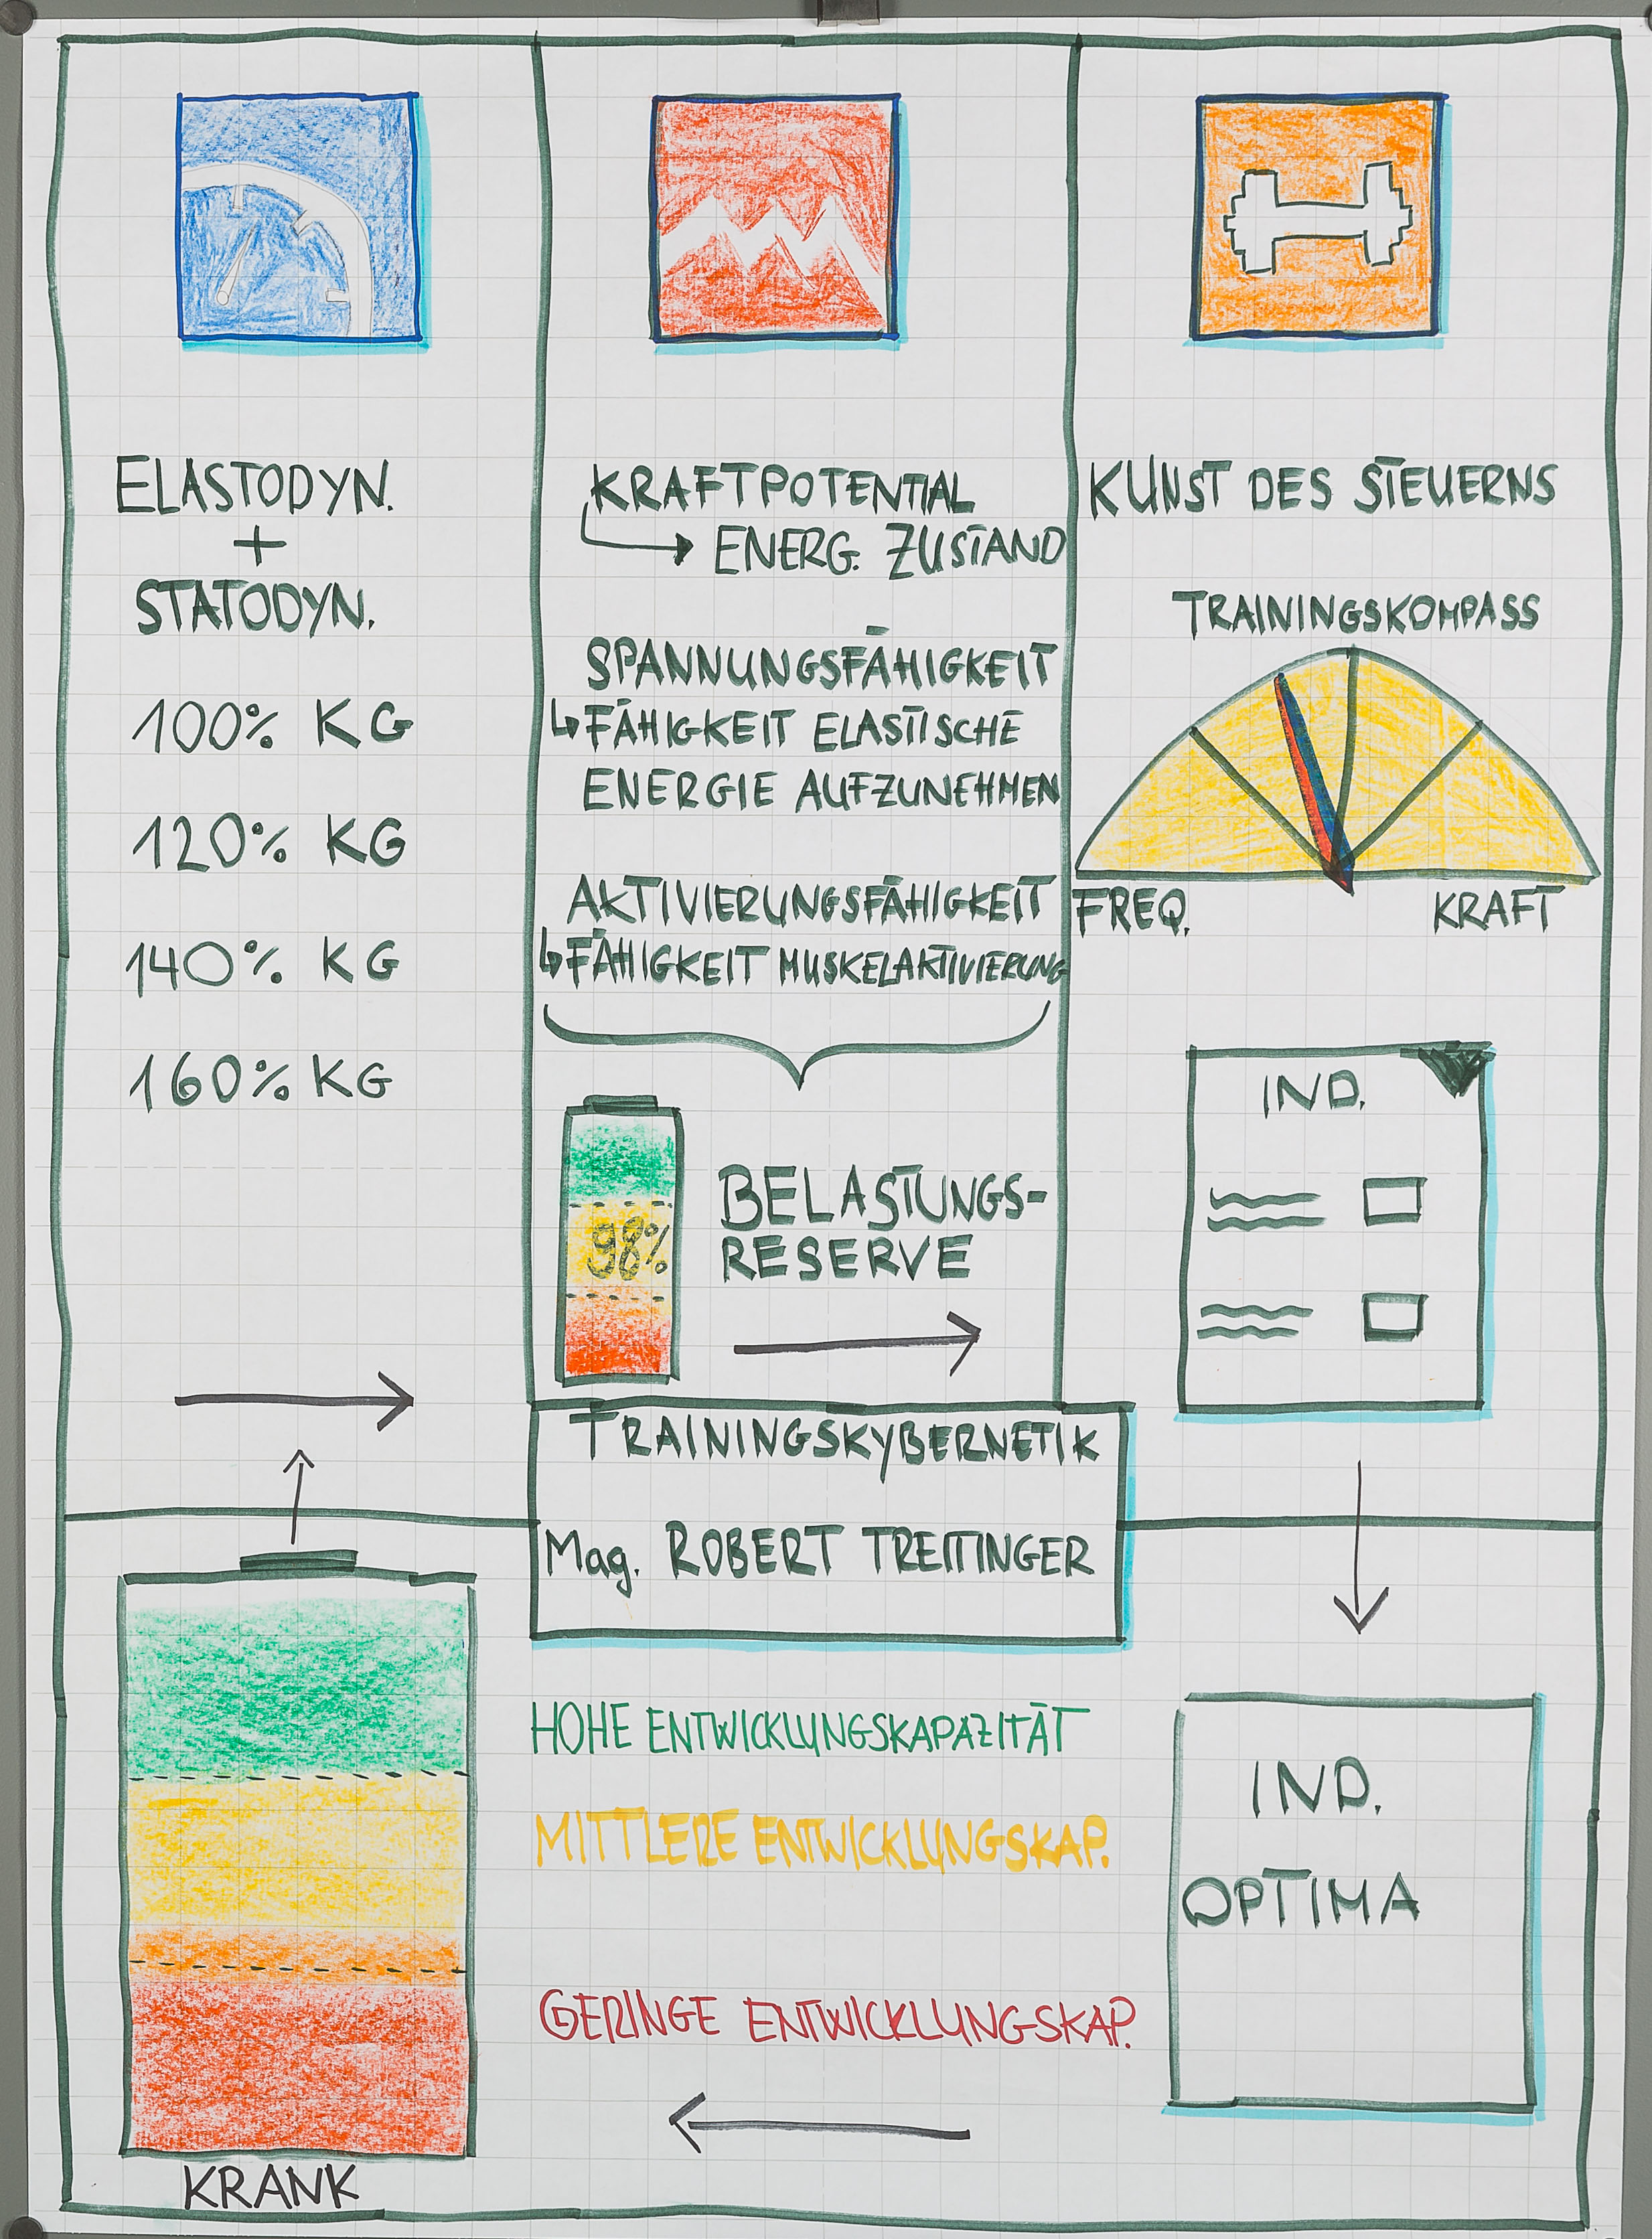 ELASTODYN.
+
STATODYN.
100% KG
120% KG
140% KG
160% KG
KRAFTPOTENTIAL
ENERG. ZUSTAND
SPANNUNGSFÄHIGKEIT
FÄHIGKEIT ELASTISCHE
ENERGIE AUFZUNEHMEN
AKTIVIERUNGSFÄHIGKEIT
FÄHIGKEIT MUSKELAKTIVIERUNG
98%
BELASTUNGS-
RESERVE
KUNST DES STEUERNS
TRAININGSKOMPASS
FREQ. KRAFT
IND.
TRAININGSKYBERNETIK
Mag. ROBERT TREITINGER
HOHE ENTWICKLUNGSKAPAZITÄT
MITTLERE ENTWICKLUNGSKAP.
GERINGE ENTWICKLUNGSKAP.
IND.
OPTIMA
KRANK